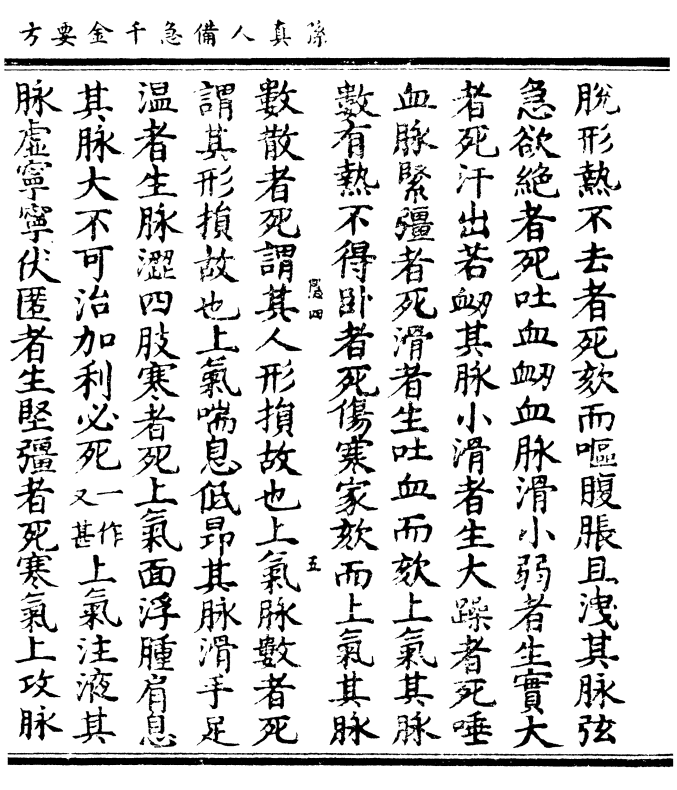 孫真人備急千金要方
脫形熱不去者死欬而嘔腹脹且洩其脉弦
急欲絕者死吐血衂血脉滑小弱者生實大
者死汗出若衂其脉小滑者生大躁者死唾
血脉緊彊者死滑者生吐血而欬上氣其脉
數有熱不得卧者死傷寒家欬而上氣其脉
數散者死謂其人形損故也上氣脉數者死
謂其形損故也上氣喘息低昂其脉滑手足
温者生脉澀四肢寒者死上氣面浮腫肩息
其脉大不可治加利必死一作又甚上氣注液其
脉虛寧寧伏匿者生堅彊者死寒氣上攻脉